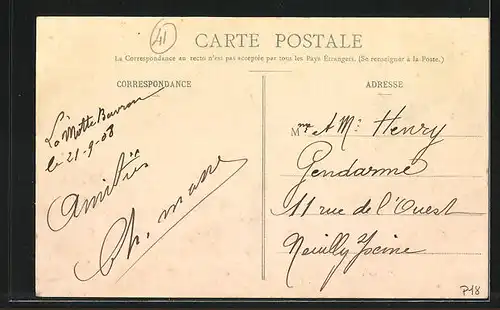 41
CARTE POSTALE
La Correspondance au recto n'est pas acceptée par tous les Pays Étrangers. (Se renseigner à la Poste.)
CORRESPONDANCE
La Motte Beuvron
le 21-9-08
Amitiés
Ch.
ADRESSE
Mme et Mr Henry
Gendarme
11 rue de l'Ouest
Neuilly s/Seine
P18